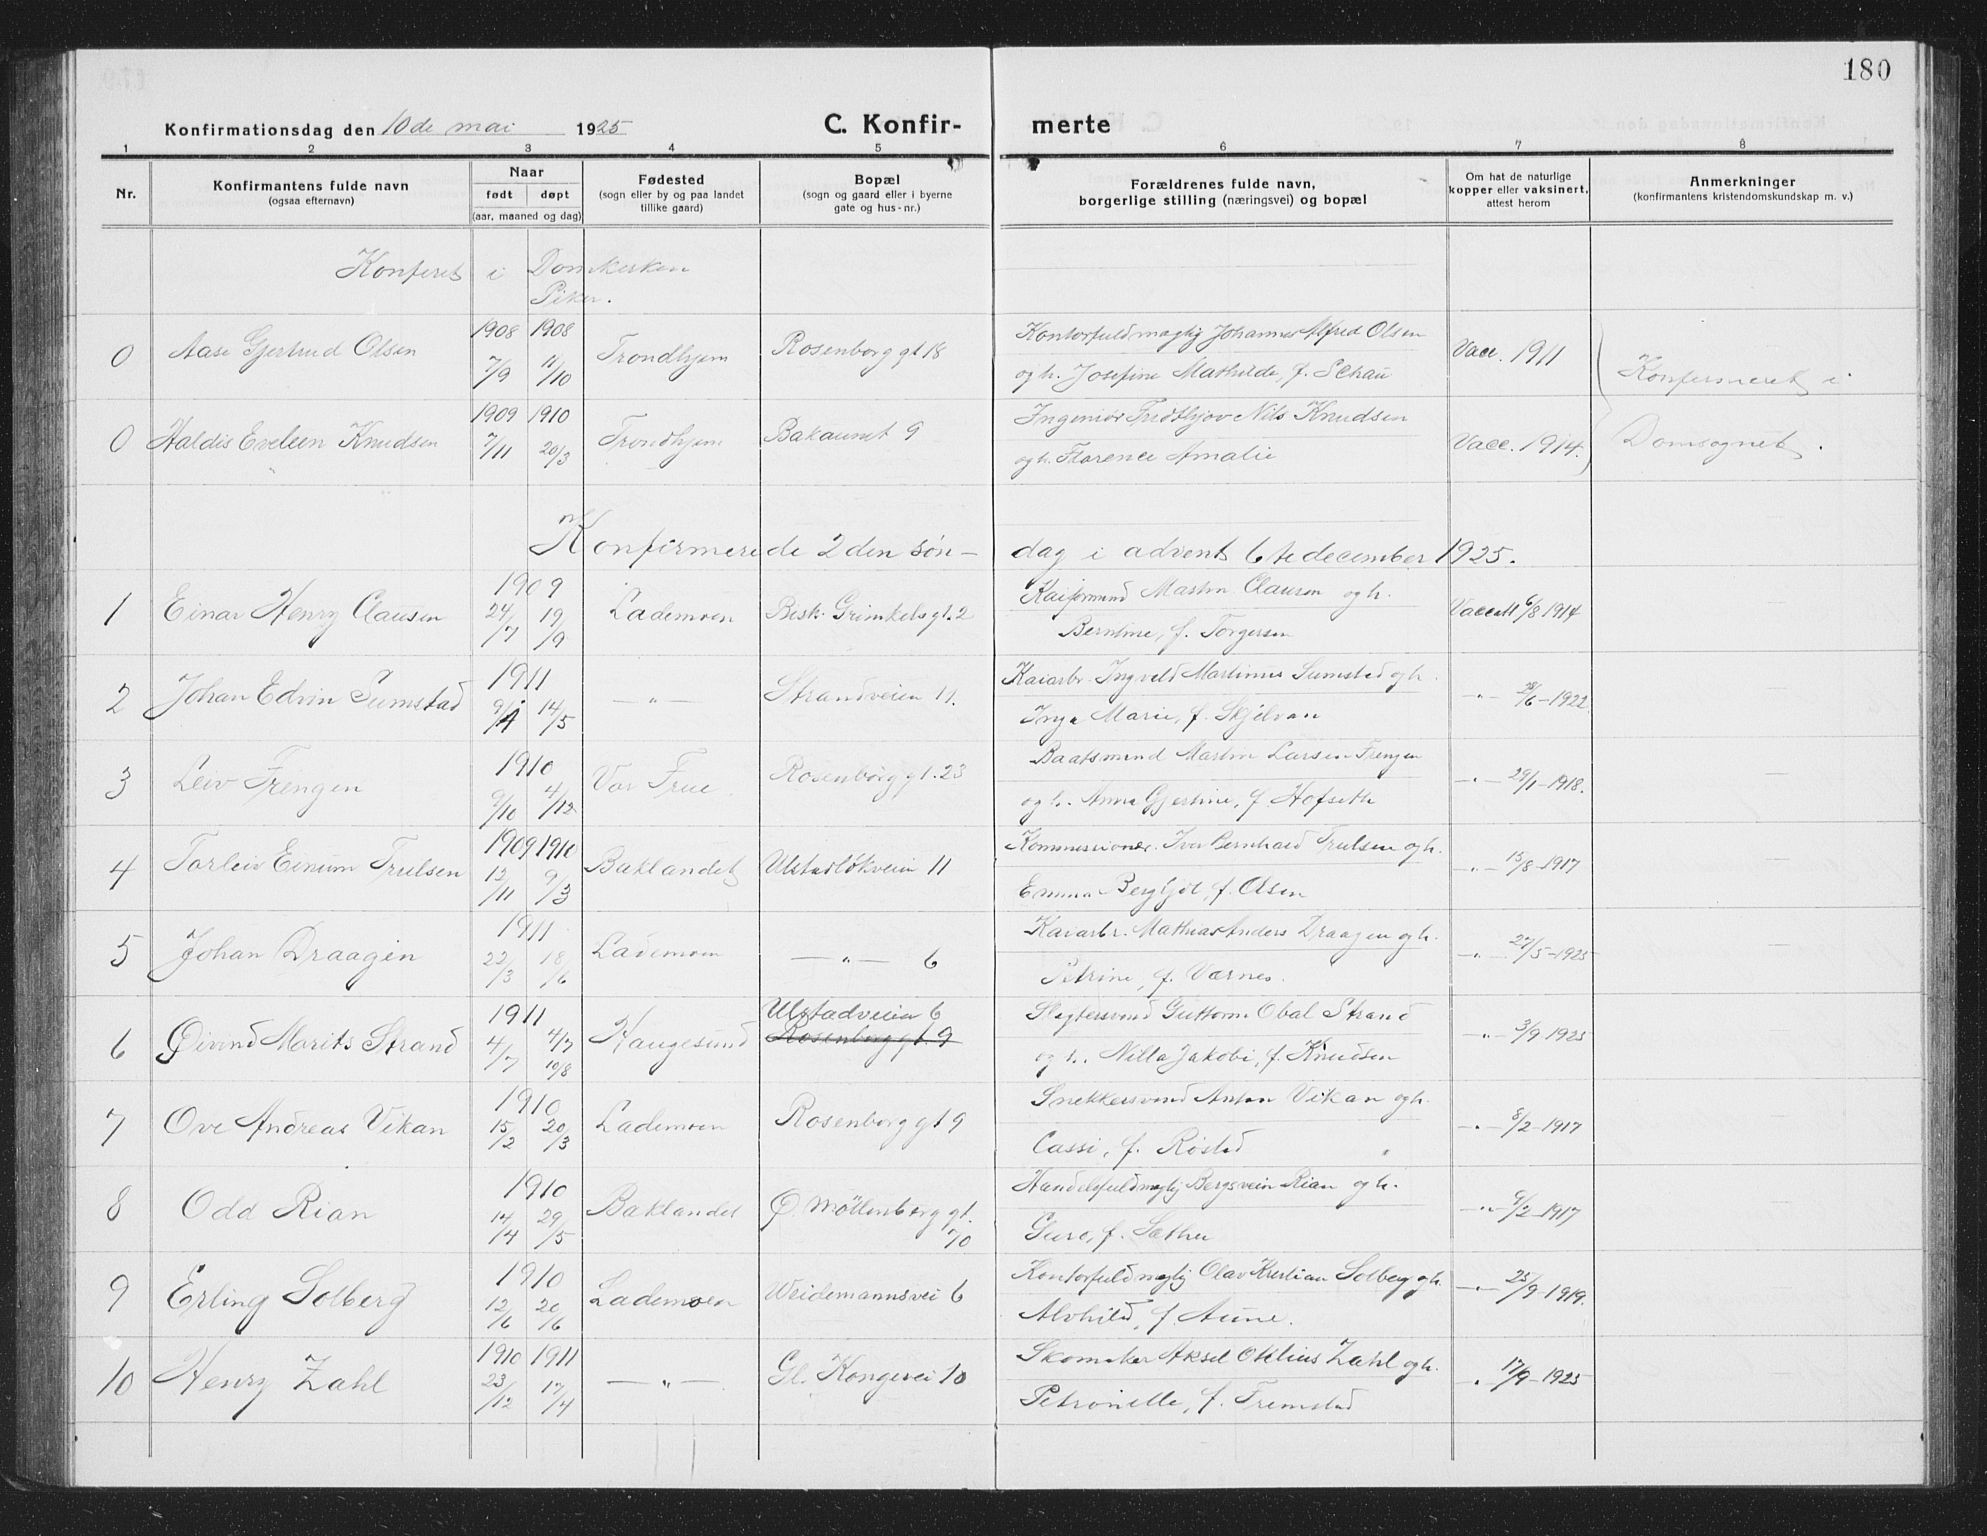 180
Konfirmationsdag den 10de mai 1925 C. Konfir- merte
1 2 3 4 5 6 7 8
Nr. Konfirmantens fulde navn (ogsaa efternavn) Naar født døpt (aar, maaned og dag) Fødested (sogn eller by og paa landet tillike gaard) Bopæl (sogn og gaard eller i byerne gate og hus-nr.) Forældrenes fulde navn, borgerlige stilling (næringsvei) og bopæl Om hat de naturlige kopper eller vaksinert, attest herom Anmerkninger (konfirmantens kristendomskundskap m. v.)
Konferet i Domkerken
Piker.
0 Aase Gjertrud Olsen 1908 7/9 1908 11/10 Trondhjem Rosenborg gt 18 Kontorfuldmægtig Johannes Alfred Olsen
og h. Josefine Mathilde, f. Schau Vacc. 1911 Konfermeret i
0 Haldis Eveleen Knudsen 1909 7/11 1910 20/3 Trondhjem Bakaunet 9 Ingeniør Fridthjov Nils Knudsen
og h. Florence Amalie Vacc. 1914. Domsognet.
Konfirmerede 2den søn- dag i advent 6te december 1925.
1 Einar Henry Clausen 1909 24/7 19/9 Lademoen Besk. Grimkels gt. 2 Kaiformand Martin Clausen og h.
Berntine, f. Torgersen Vacc att 6/8 1914
2 Johan Edvin Sumstad 1911 9/1 14/5 — " — Strandveien 11. Kaiarb. Ingveld Martinus Sumstad og h.
Inga Marie, f. Skjelvan — " — 28/6-1922.
3 Leiv Frengen 1910 9/10 4/12 Vor Frue Rosenborg gt. 23 Baatsmand Martin Larsen Frengen
og h. Anna Gjertine, f Hofseth — " — 29/1-1918.
4 Torleiv Einum Trulsen 1909 12/11 1910 9/3 Baklandet Ulstadløkveien 11 Kommissionær. Ivar Bernhard Trulsen og h.
Emma Bergljot, f. Olsen — " — 15/8-1917
5 Johan Draagen 1911 22/3 18/6 Lademoen — " — 6 Kaiarbr. Mathias Anders Draagen og h.
Petrine, f. Værnes. — " — 27/5-1925
6 Øivind Morits Strand 1911 4/7 4/7 10/8 Haugesund Ulstadveien 6
Rosenborg gt. 9 Slagtersvend Guttorm Obal Strand
og h. Nilla Jakobi, f. Knudsen — " — 3/9 1925
7 Ove Andreas Vikan 1910 15/2 20/3 Lademoen Rosenborg gt 9 Snekkersvend Anton Vikan og h.
Cassi, f. Røstad — " — 8/2-1917
8 Odd Rian 1910 14/4 29/5 Baklandet Ø. Möllenberg gt.
70 Handelsfuldmægtig Bergsvein Rian og h.
Guro, f. Sæther — " — 9/2-1917
9 Erling Solberg 1910 12/6 20/6 Lademoen Weidemannsvei 6 Kontorfuldmægtig Olav Kristian Solberg og h.
Alvhild, f. Aune. — " — 25/9-1919.
10 Henry Zahl 1910 23/12 1911 17/4 — " — Gl. Kongevei 10 Skomaker Aksel Otelius Zahl og h.
Petronelle, f. Tremstad " 17/9-1925